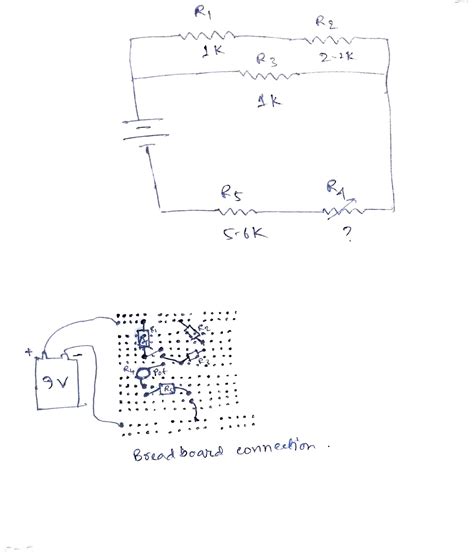 R1
R2
1K
2.2K
R3
1K
R5
R4
5.6K
?
R1
R2
R3
R4
Pot
R5
+
-
9V
Breadboard connection.